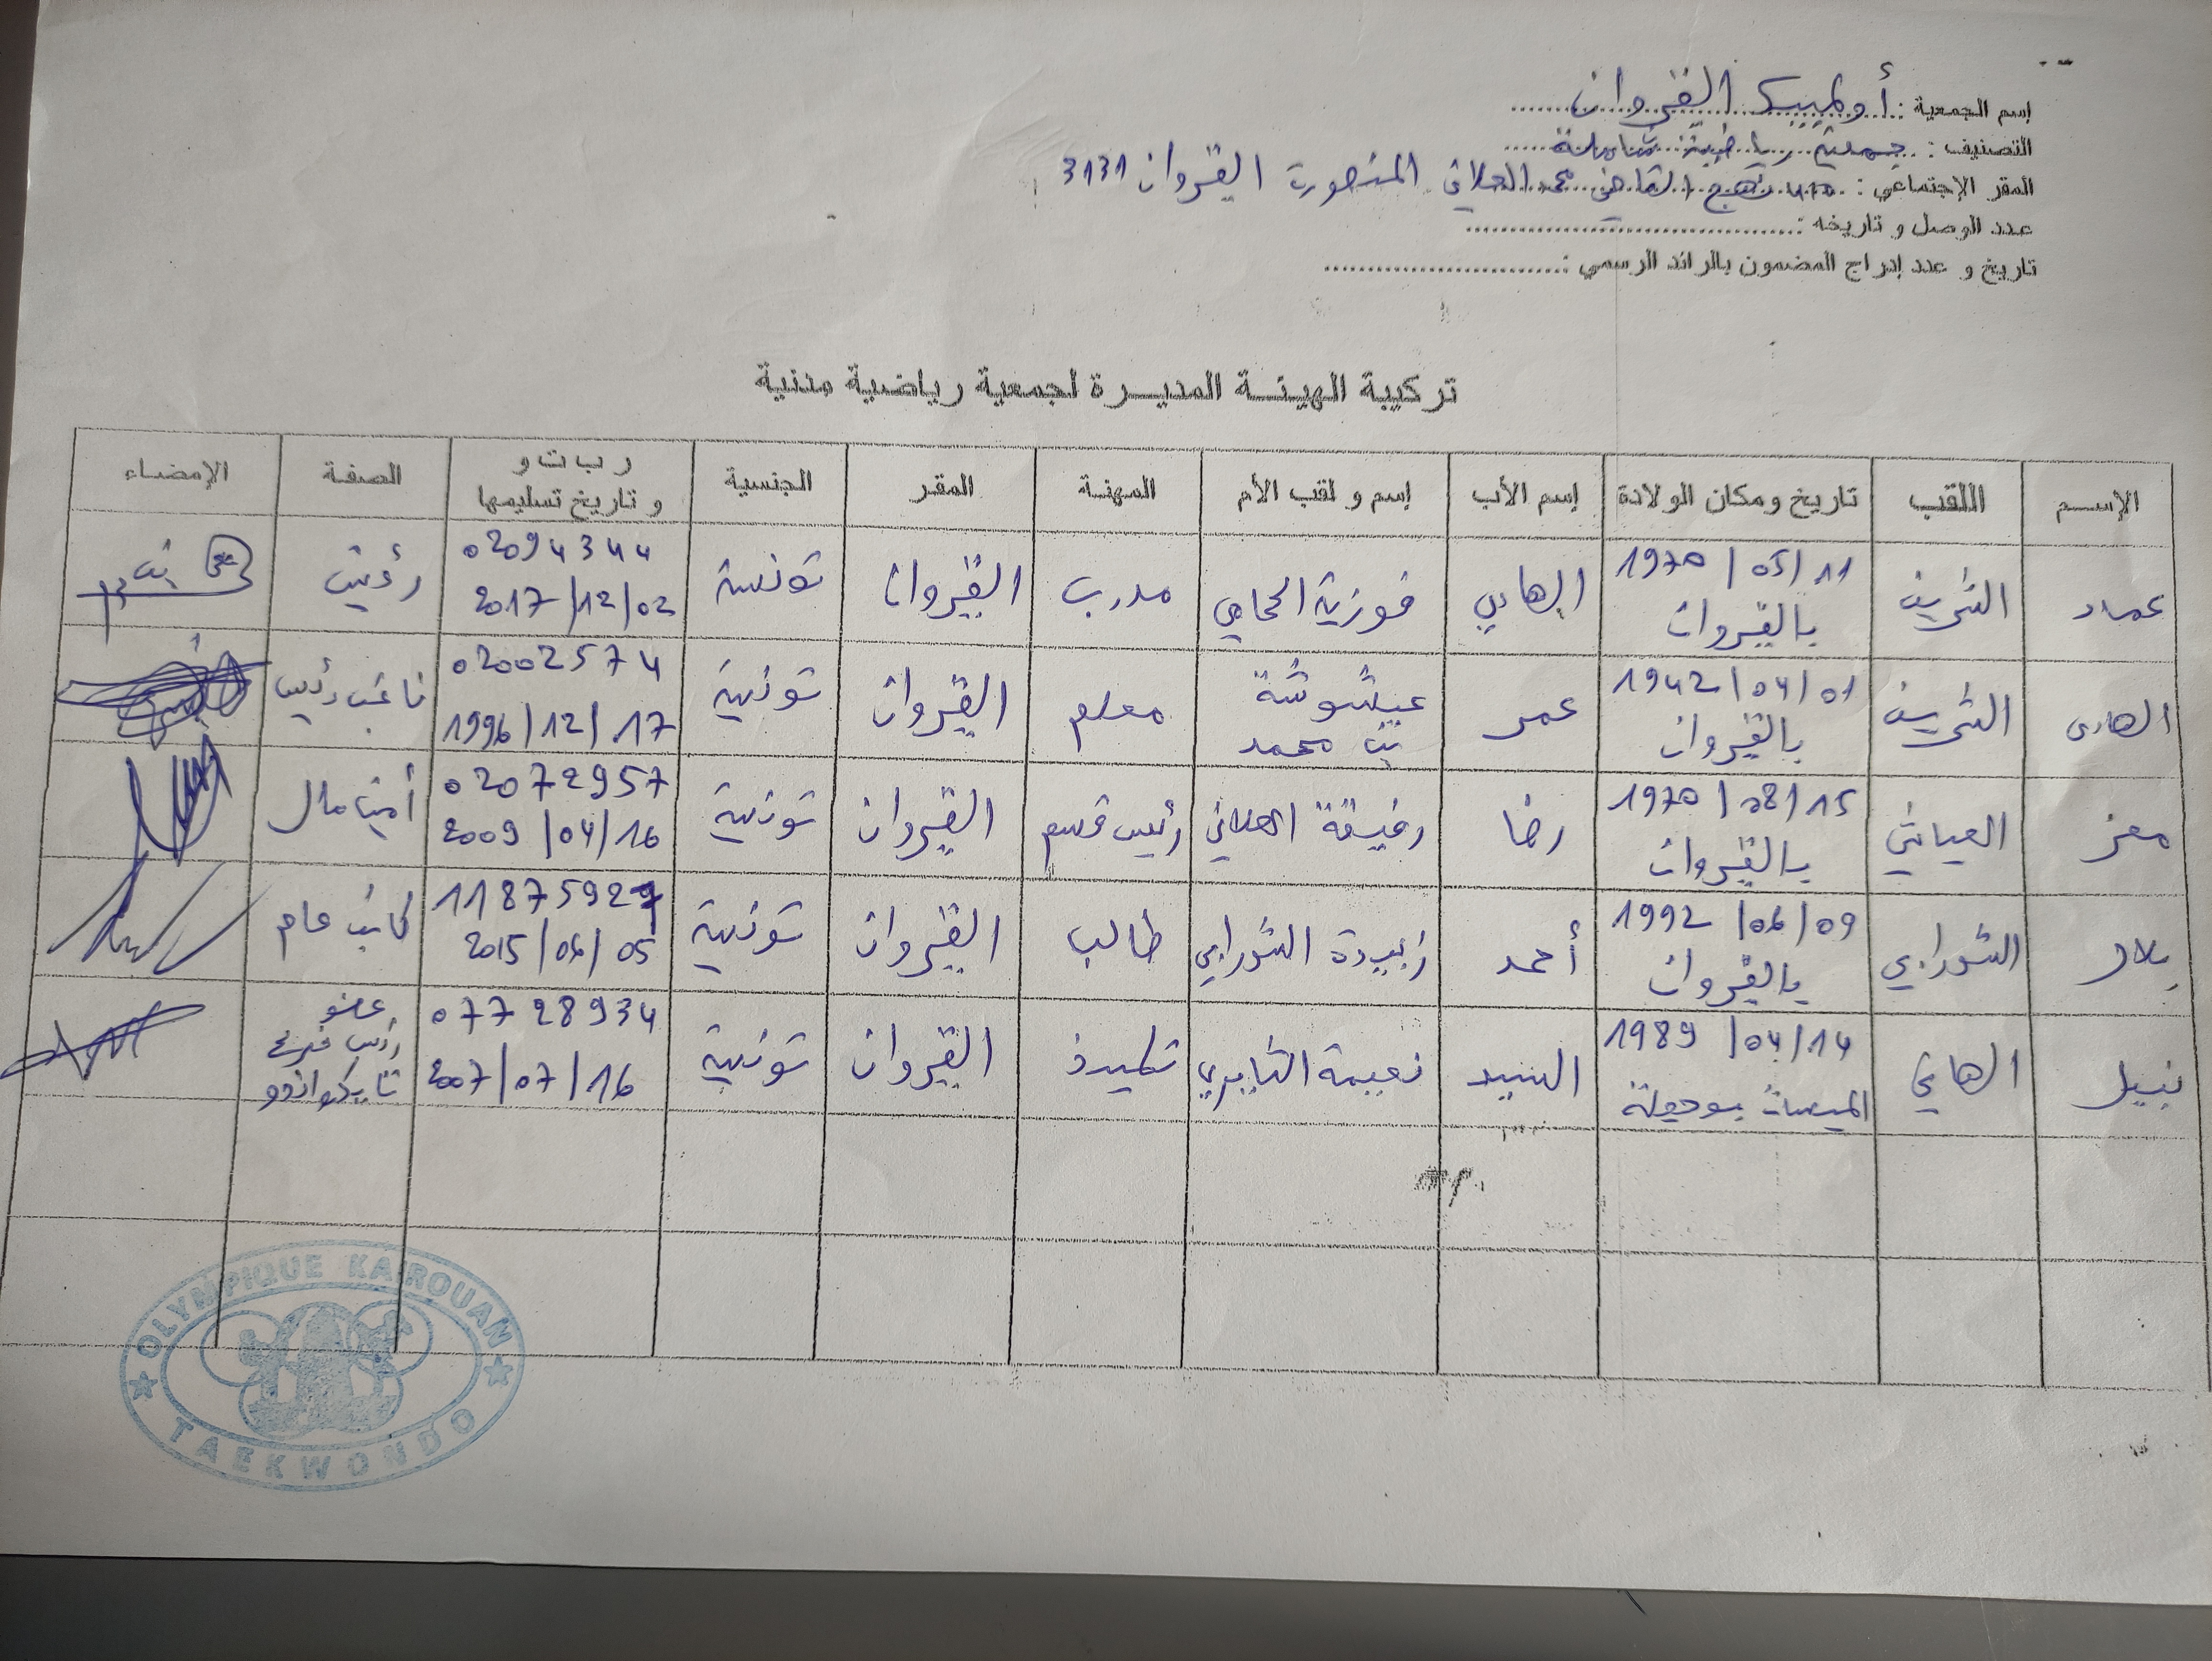 إسم الجمعية : أولمبيك القيروان
التصنيف : جمعية رياضية شاملة
المقر الإجتماعي : نهج القاضي محمد العلاني المنصورة القيروان 3131
عدد الوصل و تاريخه :
تاريخ و عدد إدراج المضمون بالرائد الرسمي :
تركيبة الهيئة المديرة لجمعية رياضية مدنية
الإسم اللقب تاريخ ومكان الولادة إسم الأب إسم و لقب الأم المهنة المقر الجنسية ر ب ت و و تاريخ تسليمها الصفة الإمضاء
عماد الشريف 1970/05/11 بالقيروان الهادي فوزية الحامي مدرب القيروان تونسية 02094344 2017/12/02 رئيس
الهادي الشريف 1942/04/01 بالقيروان عمر عيشوشة بن محمد معلم القيروان تونسية 02002574 1996/12/17 نائب رئيس
معز العياشي 1970/08/15 بالقيروان رضا رفيقة العلاني رئيس قسم القيروان تونسية 02072957 2009/04/16 أمين مال
بلال الشورابي 1992/06/09 بالقيروان أحمد زبيدة الشورابي طالب القيروان تونسية 2015/06/05 كاتب عام
نبيل الهاني 1989/04/14 السيد نعيمة تلميذ القيروان تونسية 07728934 2007/07/16 عضو رئيس فرع تايكواندو
OLYMPIQUE KAIROUAN
TAEKWONDO